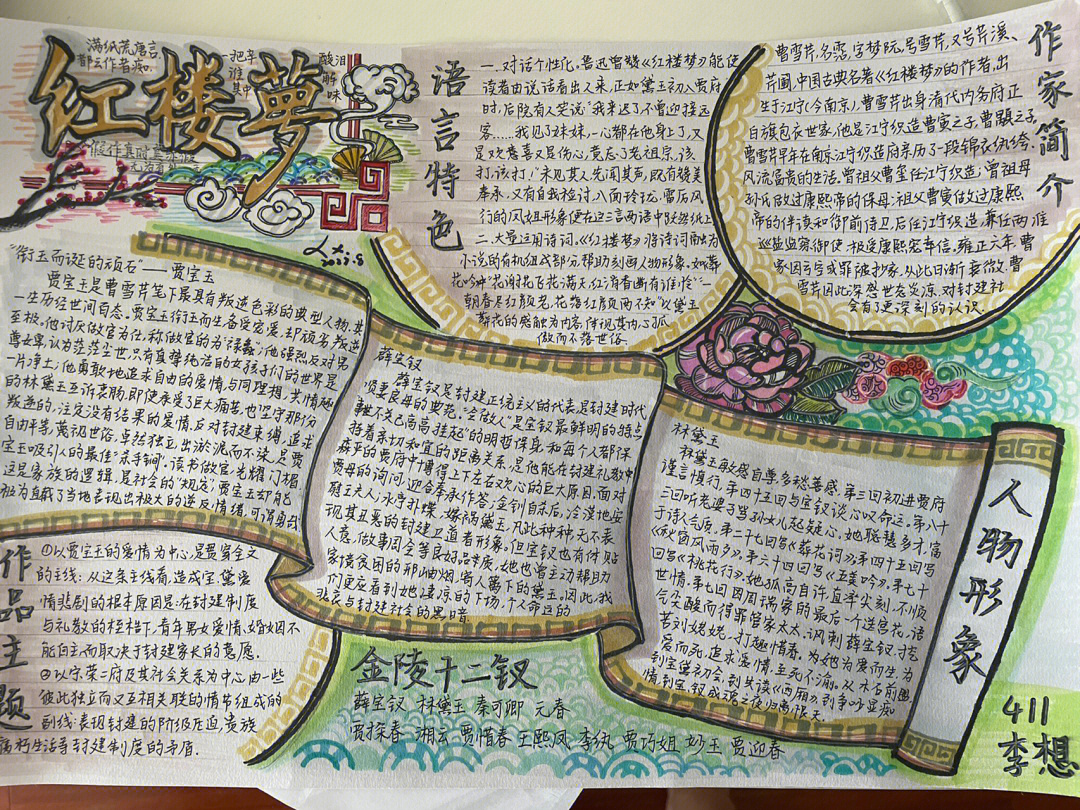 满纸荒唐言
都云作者痴
把辛酸泪
谁解
其中味
红楼梦
假作真时真亦假
语言特色
一.对话个性化,鲁迅曾赞《红楼梦》能使
读者由说话看出人来,正如黛玉初入贾府
时,后院有人笑说"我来迟了不曾迎接远
客……我见了妹妹,一心都在他身上了,又
是欢喜又是伤心,竟忘了老祖宗,该
打,该打,"未见其人先闻其声,既有赞美
奉承,又有自我检讨,八面玲珑,雷厉风
行的凤姐形象便在这三言两语中跃然纸上
二.大量运用诗词.《红楼梦》将诗词融为
小说的有机组成部分帮助刻画人物形象.如葬
花吟中"花谢花飞花满天,红消香断有谁怜""一
朝春尽红颜老,花落红颜两不知"以黛玉
葬花的感触为内容,体现其内心孤
傲而不落世俗.
作家简介
曹雪芹,名霑,字梦阮,号雪芹,又号芹溪、
芹圃,中国古典名著《红楼梦》的作者,出
生于江宁(今南京),曹雪芹出身清代内务府正
白旗包衣世家,他是江宁织造曹寅之子,曹颙之子,
曹雪芹早年在南京江宁织造府亲历了一段锦衣纨绔、
风流富贵的生活.曾祖父曹玺任江宁织造;曾祖母
孙氏做过康熙帝的保母;祖父曹寅做过康熙
帝的伴读和御前侍卫,后任江宁织造,兼任两淮
巡盐监察御使,极受康熙宠幸信,雍正六年,曹
家因亏空或罪被抄家,从此日渐衰微.曹
雪芹因此深感世态炎凉,对封建社
会有了更深刻的认识.
"衔玉而诞的顽石"——贾宝玉
贾宝玉是曹雪芹笔下最具有叛逆色彩的典型人物,其
一生历经世间百态.贾宝玉衔玉而生备受宠爱,却顽劣叛逆
至极.他讨厌做官为仕,称做官的为"禄蠹";他强烈反对男
尊女卑,认为茫茫尘世,只有真挚纯洁的女孩子们的世界是
一片净土;他勇敢地追求自由的爱情,与同理想,共情趣
的林黛玉互诉衷肠,即使承受了巨大痛苦,也坚守那份
叛逆的,注定没有结果的爱情,反对封建束缚,追求
自由平等,蔑视世俗,卓然独立,出淤泥而不染,是贾
宝玉吸引人的最佳"杀手锏".读书做官,光耀门楣
这是家族的逻辑,是社会的"规定",贾宝玉却能
直截了当地表现出极大的逆反情绪,可谓勇哉
薛宝钗
薛宝钗是封建正统主义的代表,是封建时代
贤妻良母的典范."会做人"是宝钗最鲜明的特点
事不关己高高挂起"的明哲保身,和每个人都保
持着亲切和宜的距离关系,是他能在封建礼教中
森严的贾府中博得上下左右欢心的巨大原因,面对
贾母的询问,迎合奉承作答;金钏自杀后,冷漠地安
慰王夫人;水亭扑蝶,嫁祸黛玉,凡此种种,无不表
现其丑恶的封建卫道者形象.但宝钗也有体贴
人意,做事周全等良好品质,她也曾主动帮助
家境贫困的邢岫烟,寄人篱下的黛玉,因此,我
们更应看到她凄凉的下场,个人命运的
悲哀与封建社会的黑暗.
林黛玉
林黛玉敏感自尊,多愁善感.第三回初进贾府
谨言慎行,第四十五回与宝钗谈心叹命运.第八十
三回听老婆子骂孙女儿起疑心,她聪慧多才,富
于诗人气质,第二十七回写《葬花词》,第四十五回写
《秋窗风雨夕》,第六十四回写《五美吟》,第七十
回写《桃花行》,她孤高自许,直率尖刻,不顺
世情:第七回因周瑞家的最后一个送宫花,语
气尖酸而得罪管家太太,讽刺薛宝钗,挖
苦刘姥姥,打趣惜春,为她为爱而生,为
爱而死,追求爱情,至死不渝.从木石前盟
到宝黛初会,到共读《西厢》,到争吵显痴
情,到宝钗成魂之夜归离恨天.
人物形象
作品主题
①以贾宝玉的爱情为中心,是贯穿全文
的主线:从这条主线看,造成宝、黛爱
情悲剧的根本原因是:在封建制度
与礼教的桎梏下,青年男女爱情、婚姻因不
能自主,而取决于封建家长的意愿.
②以宁荣二府及其社会关系为中心,由一些
彼此独立而又互相关联的情节组成的
副线:表现封建的阶级压迫,贵族
腐朽生活等封建制度的矛盾.
金陵十二钗
薛宝钗 林黛玉 秦可卿 元春
贾探春 湘云 贾惜春 王熙凤 李纨 贾巧姐 妙玉 贾迎春
411
李想